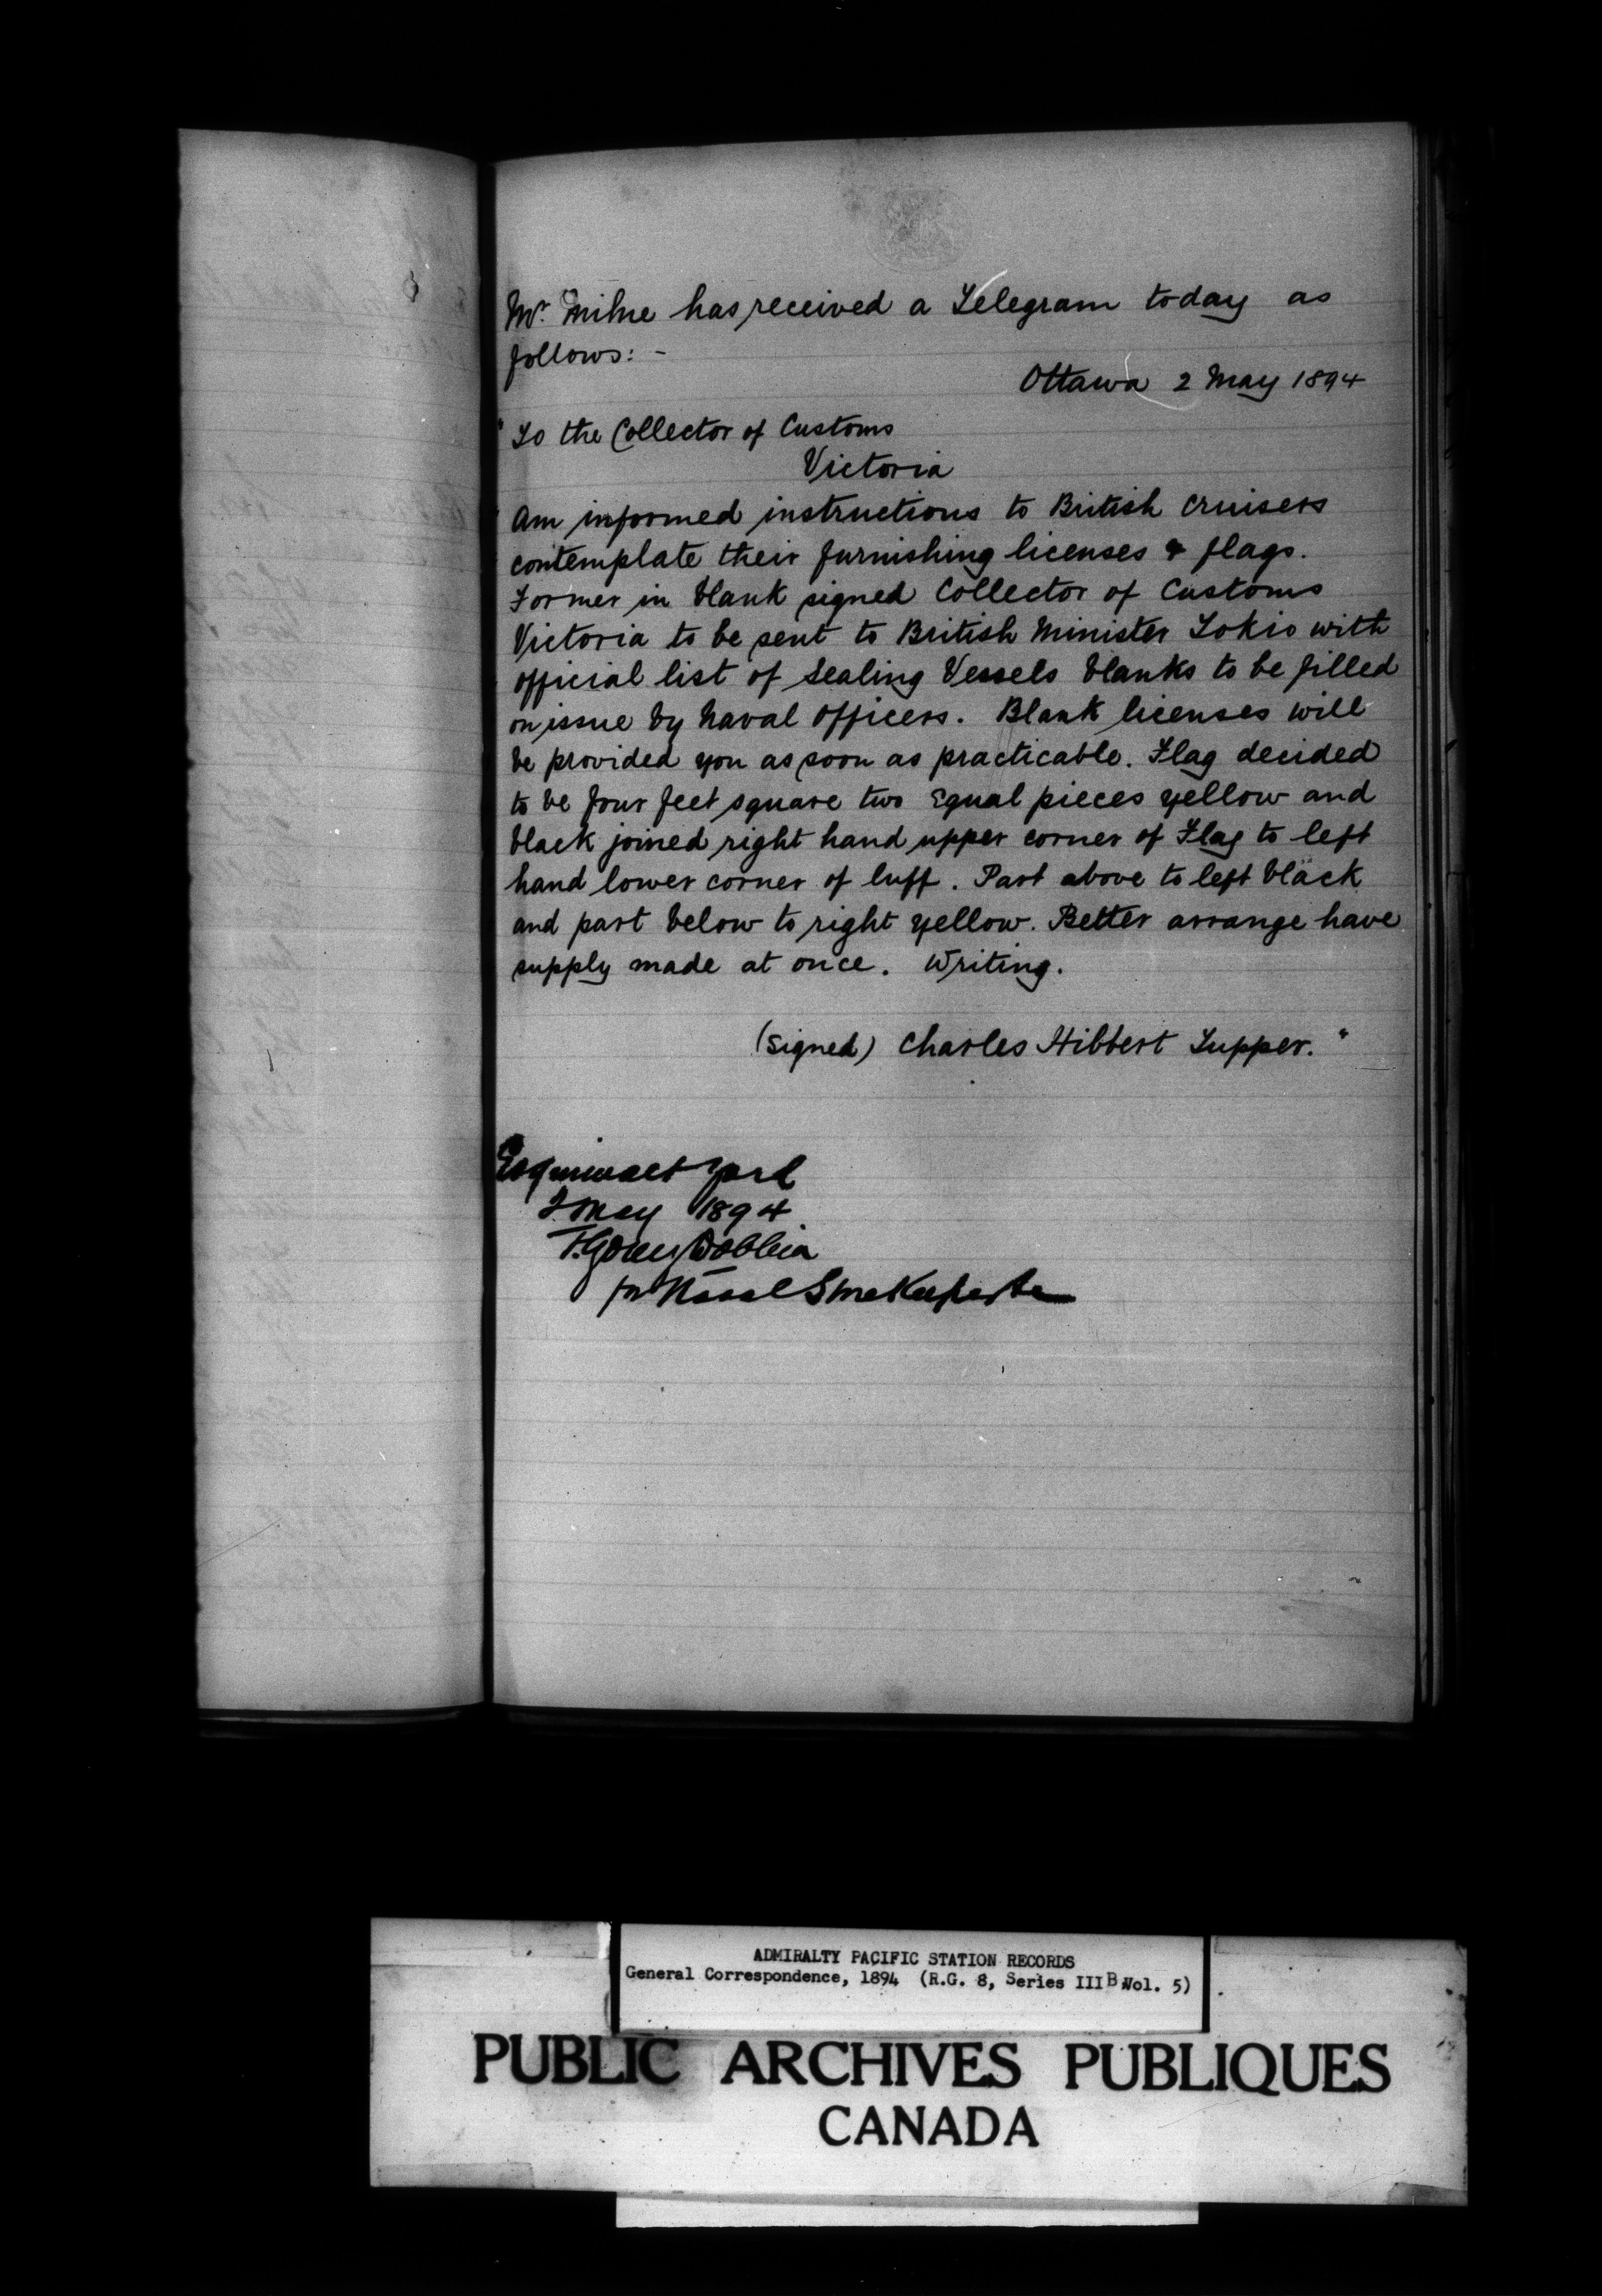 Mr. Milne has received a Telegram today as
follows: -
Ottawa 2 May 1894
"To the Collector of Customs
Victoria
"Am informed instructions to British Cruisers
contemplate their furnishing licenses & flags.
Former in blank signed Collector of Customs
Victoria to be sent to British Minister Tokio with
official list of Sealing Vessels blanks to be filled
on issue by Naval Officers. Blank licenses will
be provided you as soon as practicable. Flag decided
to be four feet square two Equal pieces yellow and
black joined right hand upper corner of Flag to left
hand lower corner of luff. Part above to left black
and part below to right yellow. Better arrange have
supply made at once. Writing.
(Signed) Charles Hibbert Tupper."
Esquimalt Yard
2 May 1894
Dobbin
for Naval Storekeeper
ADMIRALTY PACIFIC STATION RECORDS
General Correspondence, 1894 (R.G. 8, Series III B Vol. 5)
PUBLIC ARCHIVES PUBLIQUES
CANADA